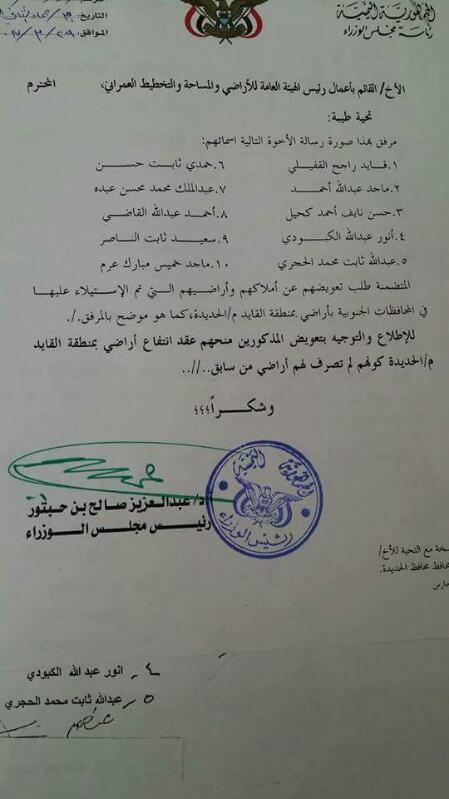 الجمهورية اليمنية
رئاسة مجلس الوزراء
التاريخ:
الموافق: ٢٩/٣/
الأخ/ القائم بأعمال رئيس الهيئة العامة للأراضي والمساحة والتخطيط العمراني، المحترم
تحية طيبة:
مرفق بهذا صورة رسالة الأخوة التالية اسمائهم:
١. قايد راجح القفيلي ٦. حمدي ثابت حسن
٢. ماجد عبدالله أحمد ٧. عبدالملك محمد محسن عبده
٣. حسن نايف أحمد كحيل ٨. أحمد عبدالله القاضي
٤. أنور عبدالله الكبودي ٩. سعيد ثابت الناصر
٥. عبدالله ثابت محمد الحجري ١٠. ماجد خميس مبارك عرم
المتضمنة طلب تعويضهم عن أملاكهم وأراضيهم التي تم الإستيلاء عليها
في المحافظات الجنوبية بأراضي بمنطقة القايد م/الحديدة، كما هو موضح بالمرفق./.
للإطلاع والتوجيه بتعويض المذكورين منحهم عقد انتفاع أراضي بمنطقة القايد
م/الحديدة كونهم لم تصرف لهم أراضي من سابق..//..
وشكراً،،،
أ.د/ عبدالعزيز صالح بن حبتور
رئيس مجلس الوزراء
الجمهورية اليمنية
رئيس الوزراء
سخة مع التحية للأخ/
محافظ محافظة الحديدة.
٤- انور عبد الله الكبودي
٥- عبدالله ثابت محمد الحجري